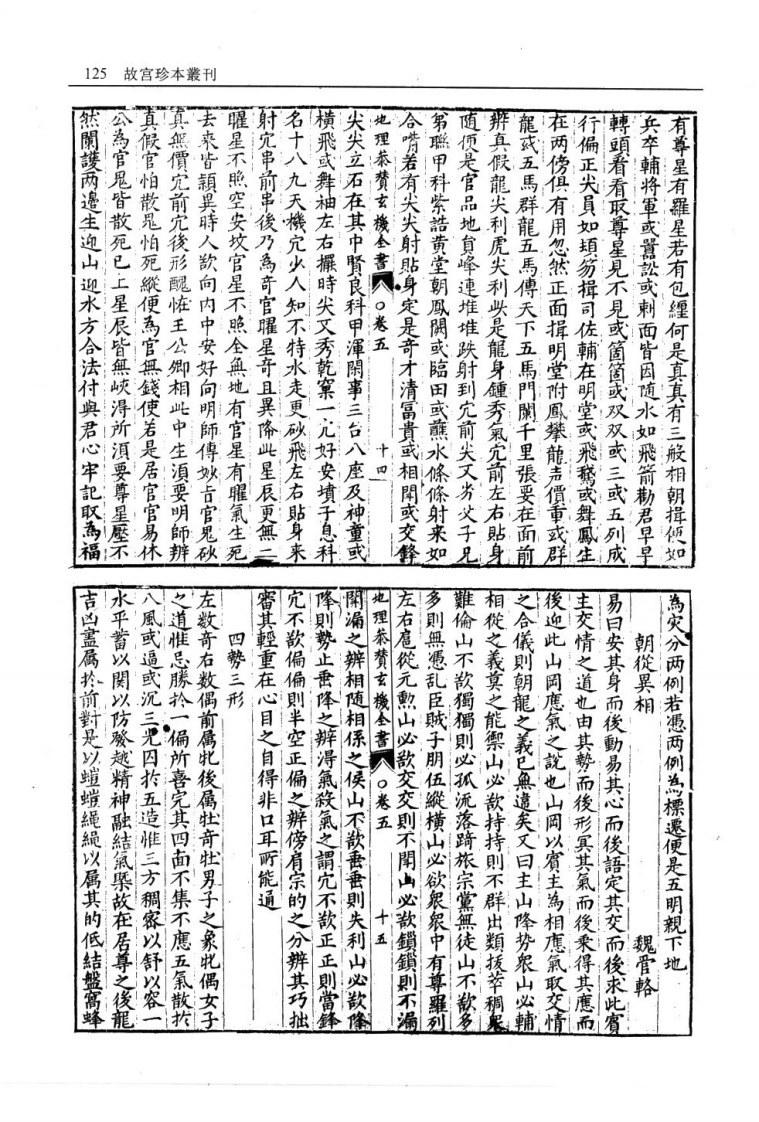 125 故宮珍本叢刊
有尊星有羅星若有包纏何是真真有三般相朝揖便如
兵卒輔將軍或囂訟或刺面皆因隨水如飛箭勸君早早
轉頭看看取尊星見不見或箇箇或双双或三或五列成
行偏正尖員如頊笏揖司佐輔在明堂或飛鵞或舞鳳生
在两傍俱有用忽然正面揖明堂附鳳攀龍声價重或群
龍或五馬群龍五馬傳天下五馬門闌千里張要在面前
辨真假龍尖利虎尖利此是龍身鍾秀氣穴前左右貼身
隨便是官品地貟峰連堆堆趺射到穴前尖又劣父子兄
弟聯甲科紫誥黄堂朝鳳闕或臨田或蘸水條條射来如
合嘴若有尖尖射貼身定是奇才清冨貴或相閗或交鋒
地理叅賛玄機全書 ○卷五 十四
尖尖立石在其中賢良科甲渾閑事三台八座及神童或
橫飛或舞袖左右擺時尖又秀乾窠一穴好安墳子息科
名十八九天機穴少人知不特水走更砂飛左右貼身来
射穴串前串後乃為奇官曜星奇且異降此星辰更無二
曜星不照空安坟官星不照全無地有官星有曜氣生死
去來皆頴異時人欲向内中安好向明師傳妙㫖官鬼砂
真無價穴前穴後形醜恠王公卿相此中生湏要明師辨
真假官怕散鬼怕死縱便為官無錢使若是居官官易休
公為官鬼皆散死已上星辰皆無峽淂所湏要尊星壓不
然闌護两邊生迎山迎水方合法付與君心牢記取為福
為灾分两例若憑两例為標遷便是五明親下地
朝從異相 魏管輅
易曰安其身而後動易其心而後語定其交而後求此賔
主交情之道也由其勢而後形㝠其氣而後乘得其應而
後迎此山岡應氣之說也山岡以賓主為相應氣取交情
之合儀則朝龍之義已無遺矣又曰主山降势衆山必輔
相從之義莫之能禦山必欲持持則不群出類拔萃稠衆
難倫山不欲獨獨則必孤流落踦旅宗黨無徒山不欲多
多則無憑乱臣賊子朋伍縱横山必欲衆衆中有尊羅列
左右扈從元勲山必欲交交則不閗山必欲鎖鎖則不漏
地理叅賛玄機全書 ○卷五 十五
閗漏之辨相隨相係之俟山不欲垂垂則失利山必欲降
降則勢止垂降之辨淂氣殺氣之謂穴不欲正正則當鋒
穴不欲偏偏則半空正偏之辨傍肩宗的之分辨其巧拙
審其輕重在心目之自得非口耳所能通
四勢三形
左數奇右数偶前属牝後属牡奇牡男子之象牝偶女子
之道惟忌勝扵一偏所喜完其四面不集不應五氣散扵
八風或逼或沉三光囚扵五造惟三方稠宻以舒以容一
水平蓄以関以防發越精神融結氣槩故在居尊之後龍
吉凶盡属扵前對是以螘螘繩繩以属其的低結盤窩蜂